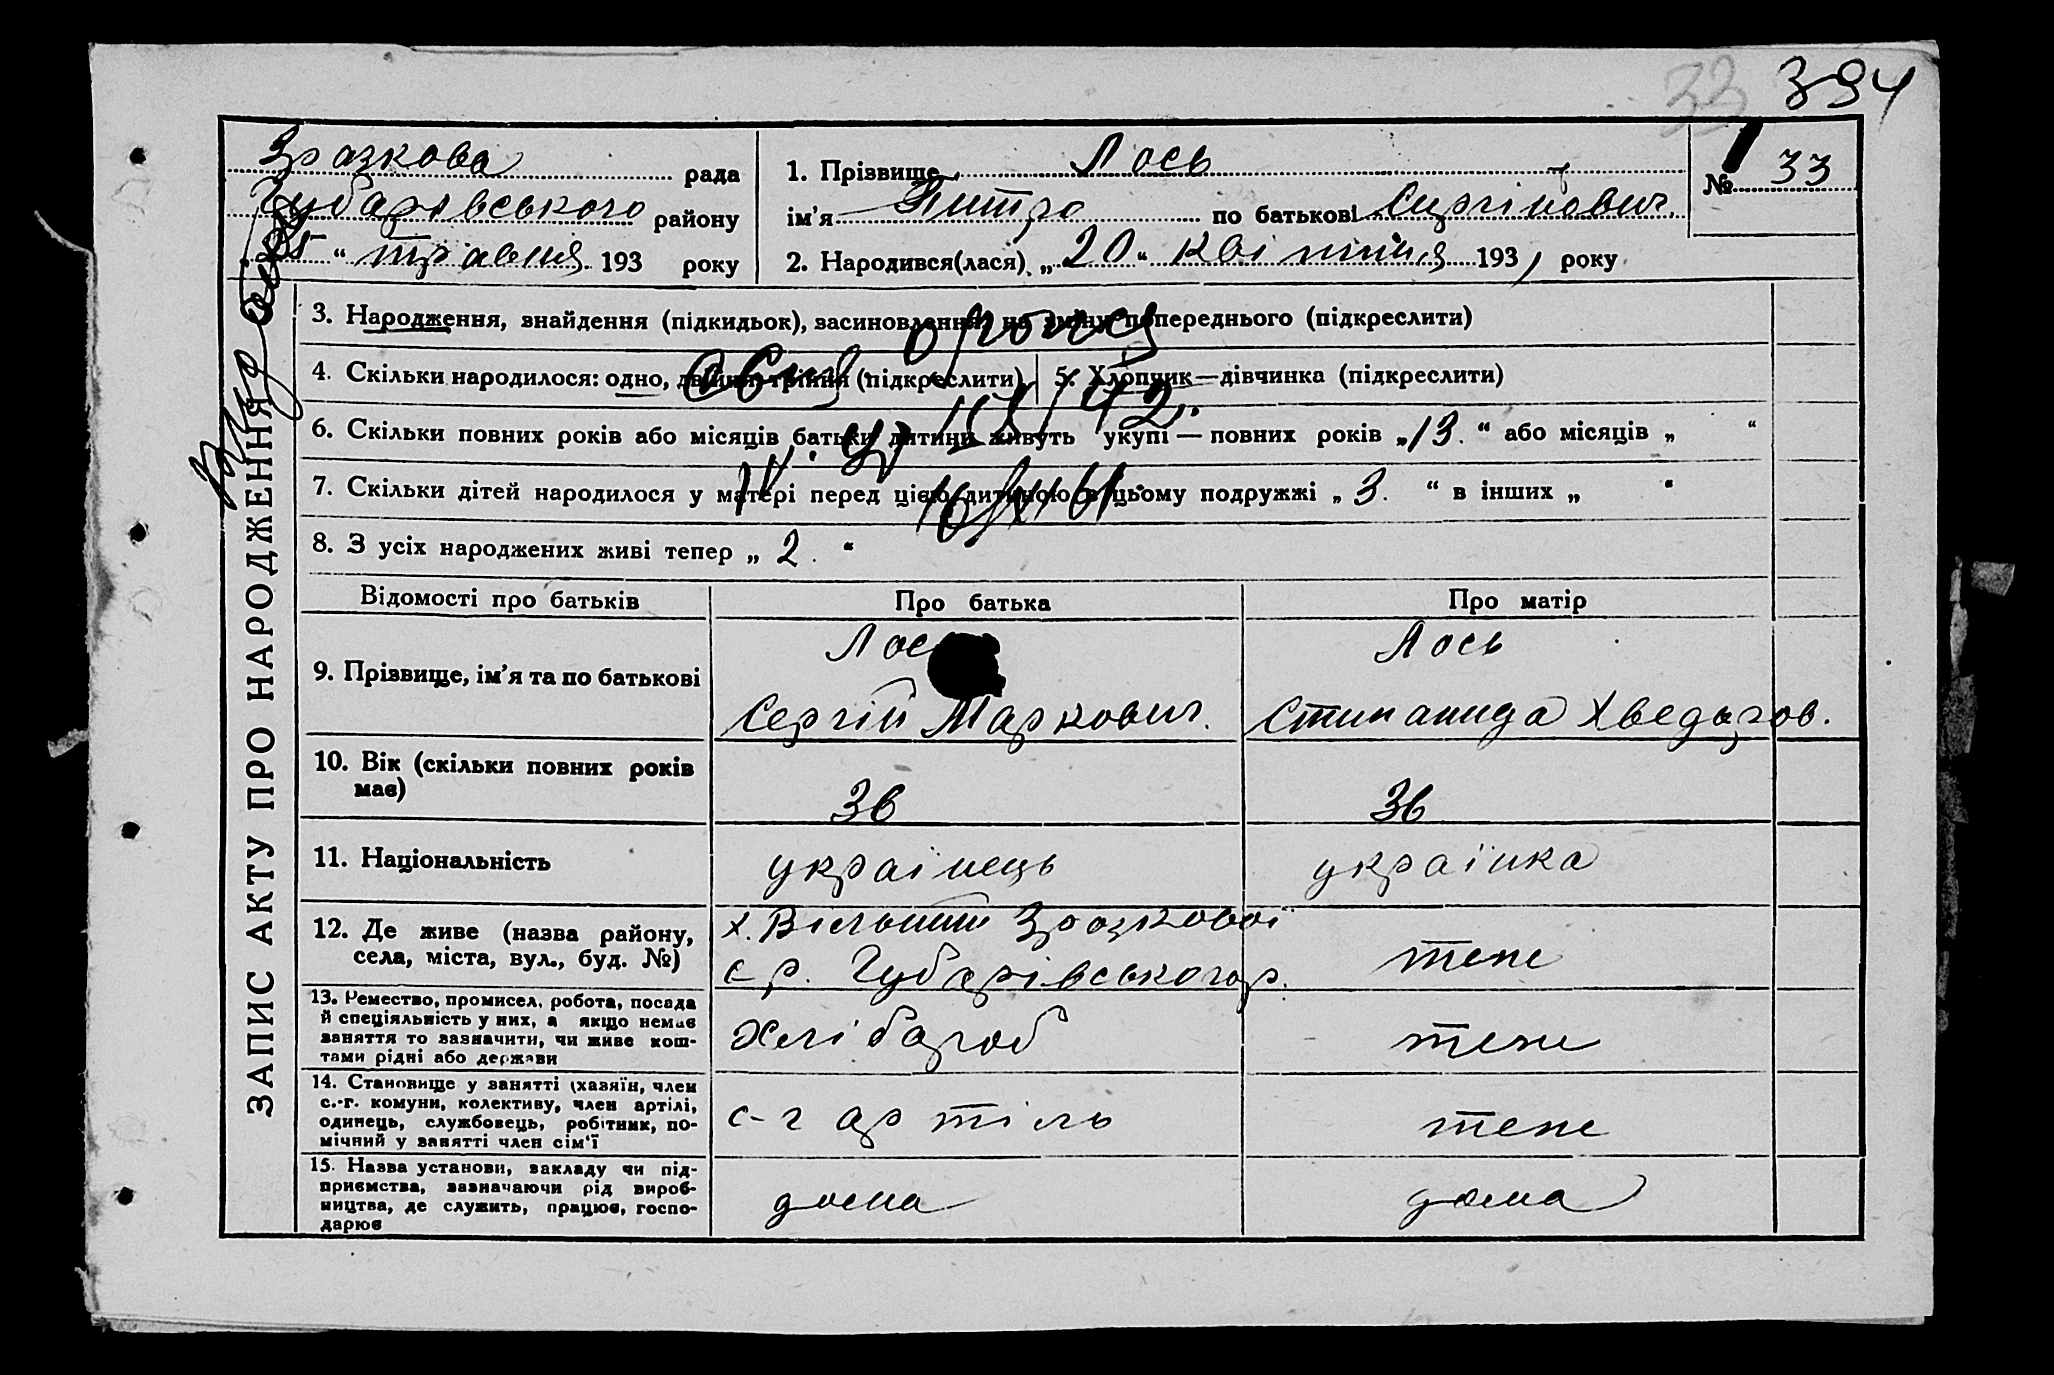 33 394
Зразкова рада
Губарівського району
"25" травня 193 року
1. Прізвище Лось
ім'я Дмитро по батькові Сиргійович
2. Народився(лася) „20“ квітня 1931 року
№ 33
ЗАПИС АКТУ ПРО НАРОДЖЕННЯ
3. Народження, знайдення (підкидьок), засиновлення, на зміну попереднього (підкреслити)
4. Скільки народилося: одно, двійня, трійня (підкреслити)
5. Хлопчик—дівчинка (підкреслити)
6. Скільки повних років або місяців батьки дитини живуть укупі — повних років „13.“ або місяців „ “
7. Скільки дітей народилося у матері перед цією дитиною в цьому подружжі „3.“ в інших „ “
8. З усіх народжених живі тепер „2.“
Відомості про батьків
Про батька
Про матір
9. Прізвище, ім'я та по батькові
Лось
Сергій Маркович.
Лось
Стипанида Хведоров.
10. Вік (скільки повних років
має)
36
36
11. Національність
українець
українка
12. Де живе (назва району,
села, міста, вул., буд. №)
х. Вільний Зразкової
с.р. Губарівського р.
тепе
13. Ремество, промисел, робота, посада
й спеціяльність у них, а якщо немає
заняття то зазначити, чи живе кош-
тами рідні або держави
Хлібороб
тепе
14. Становище у занятті (хазяїн, член
с.-г. комуни, колективу, член артілі,
одинець, службовець, робітник, по-
мічний у занятті член сім'ї
с-г артіль
тепе
15. Назва установи, закладу чи під-
приємства, зазначаючи рід вироб-
ництва, де служить, працює, госпо-
дарює
дома
дома